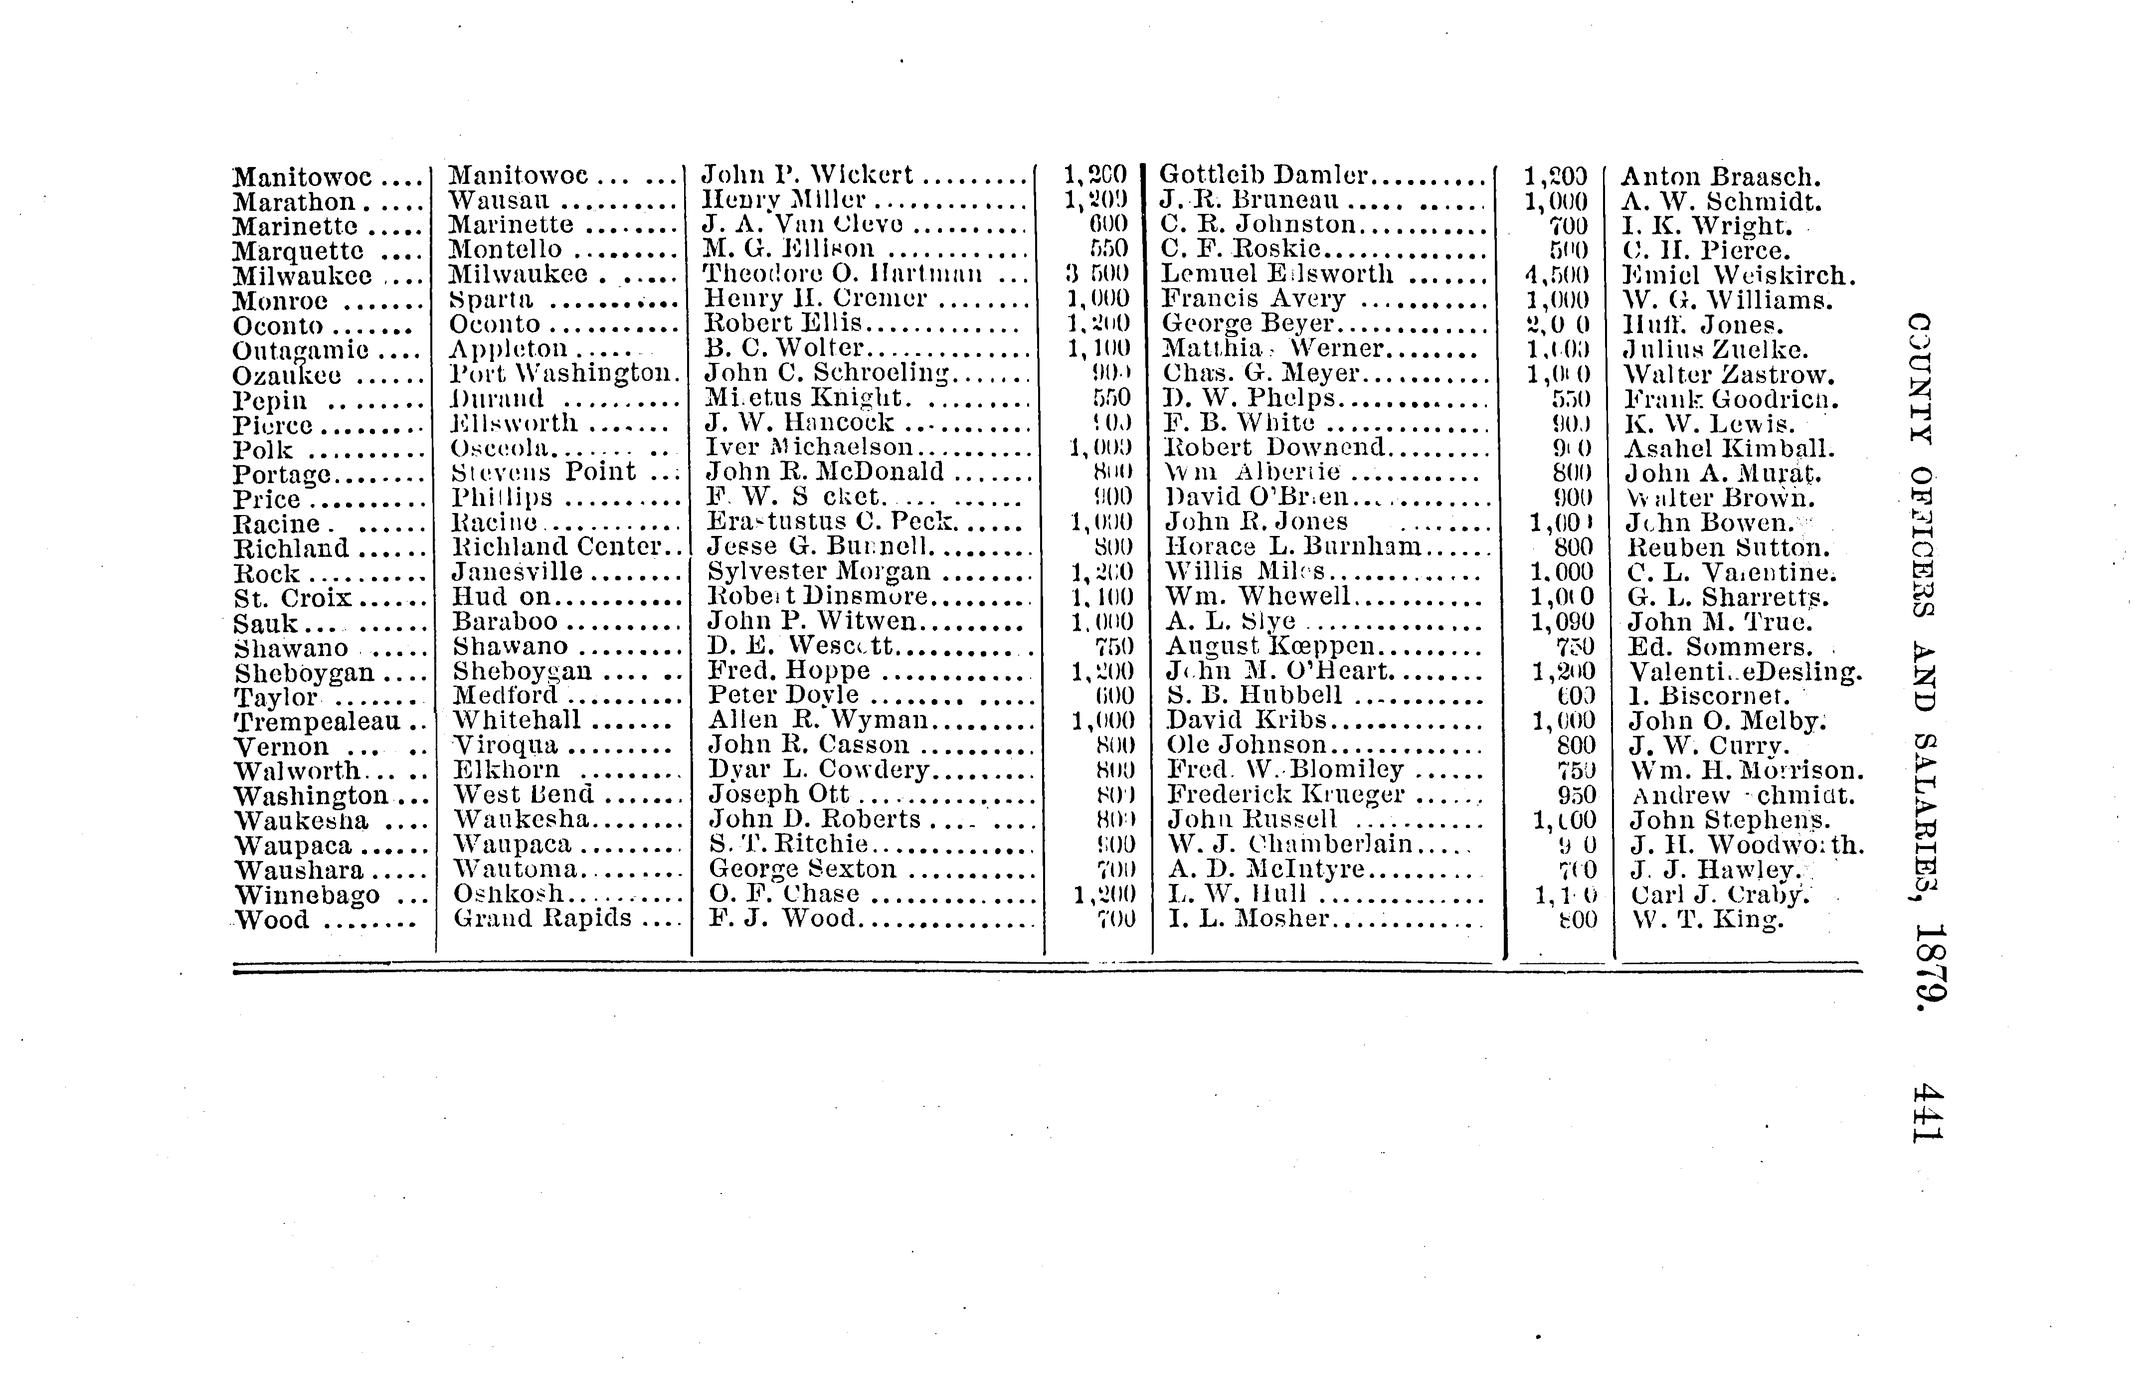 Manitowoc .... Manitowoc ... ... John P. Wickert ......... 1,200 Gottleib Damler.......... 1,200 Anton Braasch.
Marathon. ..... Wausau .......... Henry Miller ............. 1,200 J. R. Bruneau ..... ...... 1,000 A. W. Schmidt.
Marinette ..... Marinette ........ J. A. Van Cleve .......... 600 C. R. Johnston........... 700 I. K. Wright.
Marquette .... Montello ......... M. G. Ellison ............ 550 C. F. Roskie.............. 500 C. H. Pierce.
Milwaukee .... Milwaukee . ..... Theodore O. Hartman ... 3 500 Lemuel Ellsworth ....... 4,500 Emiel Weiskirch.
Monroe ....... Sparta ........... Henry H. Cremer ........ 1,000 Francis Avery ........... 1,000 W. G. Williams.
Oconto ....... Oconto ........... Robert Ellis............. 1,200 George Beyer............. 2,0 0 Huff. Jones.
Outagamie .... Appleton ..... B. C. Wolter.............. 1,100 Matthia Werner........ 1,000 Julius Zuelke.
Ozaukee ...... Port Washington. John C. Schroeling....... 900 Chas. G. Meyer........... 1,000 Walter Zastrow.
Pepin ........ Durand .......... Mi etus Knight. ......... 550 D. W. Phelps............. 550 Frank Goodrich.
Pierce ......... Ellsworth ....... J. W. Hancock ........... 900 F. B. White .............. 900 K. W. Lewis.
Polk .......... Osceola....... .. Iver Michaelson.......... 1,000 Robert Downend......... 900 Asahel Kimball.
Portage........ Stevens Point ... John R. McDonald ....... 800 Wm Albertie ........... 800 John A. Murat.
Price .......... Phillips .......... F. W. S cket..... ....... 900 David O'Brien........... 900 Walter Brown.
Racine. ...... Racine ........... Erastustus C. Peck...... 1,000 John R. Jones ........ 1,000 John Bowen.
Richland ...... Richland Center.. Jesse G. Bunnell......... 800 Horace L. Burnham...... 800 Reuben Sutton.
Rock .......... Janesville ........ Sylvester Morgan ........ 1,200 Willis Miles............. 1.000 C. L. Valentine.
St. Croix ...... Hud on........... Robert Dinsmore......... 1,100 Wm. Whewell........... 1,000 G. L. Sharretts.
Sauk... ...... Baraboo .......... John P. Witwen......... 1.000 A. L. Slye ............... 1,090 John M. True.
Shawano ..... Shawano ......... D. E. Wescott............ 750 August Kœppen......... 750 Ed. Sommers.
Sheboygan .... Sheboygan .... .. Fred. Hoppe ............. 1,200 John M. O'Heart........ 1,200 Valenti eDesling.
Taylor ....... Medford .......... Peter Doyle ........ ..... 600 S. B. Hubbell ........... 600 I. Biscornet.
Trempealeau .. Whitehall ....... Allen R. Wyman......... 1,000 David Kribs............. 1,000 John O. Melby.
Vernon ... .. Viroqua ......... John R. Casson .......... 800 Ole Johnson............. 800 J. W. Curry.
Walworth... .. Elkhorn ......... Dyar L. Cowdery......... 800 Fred. W. Blomiley ...... 750 Wm. H. Morrison.
Washington ... West Bend ....... Joseph Ott .............. 800 Frederick Krueger ...... 950 Andrew chmidt.
Waukesha .... Waukesha........ John D. Roberts .... .... 800 John Russell ........... 1,000 John Stephens.
Waupaca ...... Waupaca ......... S. T. Ritchie.............. 900 W. J. Chamberlain..... 9 0 J. H. Woodworth.
Waushara ..... Wautoma......... George Sexton .......... 700 A. D. McIntyre.......... 700 J. J. Hawley.
Winnebago ... Oshkosh.......... O. F. Chase .............. 1,200 L. W. Hull .............. 1,1 0 Carl J. Craby.
Wood ........ Grand Rapids .... F. J. Wood............... 700 I. L. Mosher............. 800 W. T. King.
COUNTY OFFICERS AND SALARIES, 1879. 441